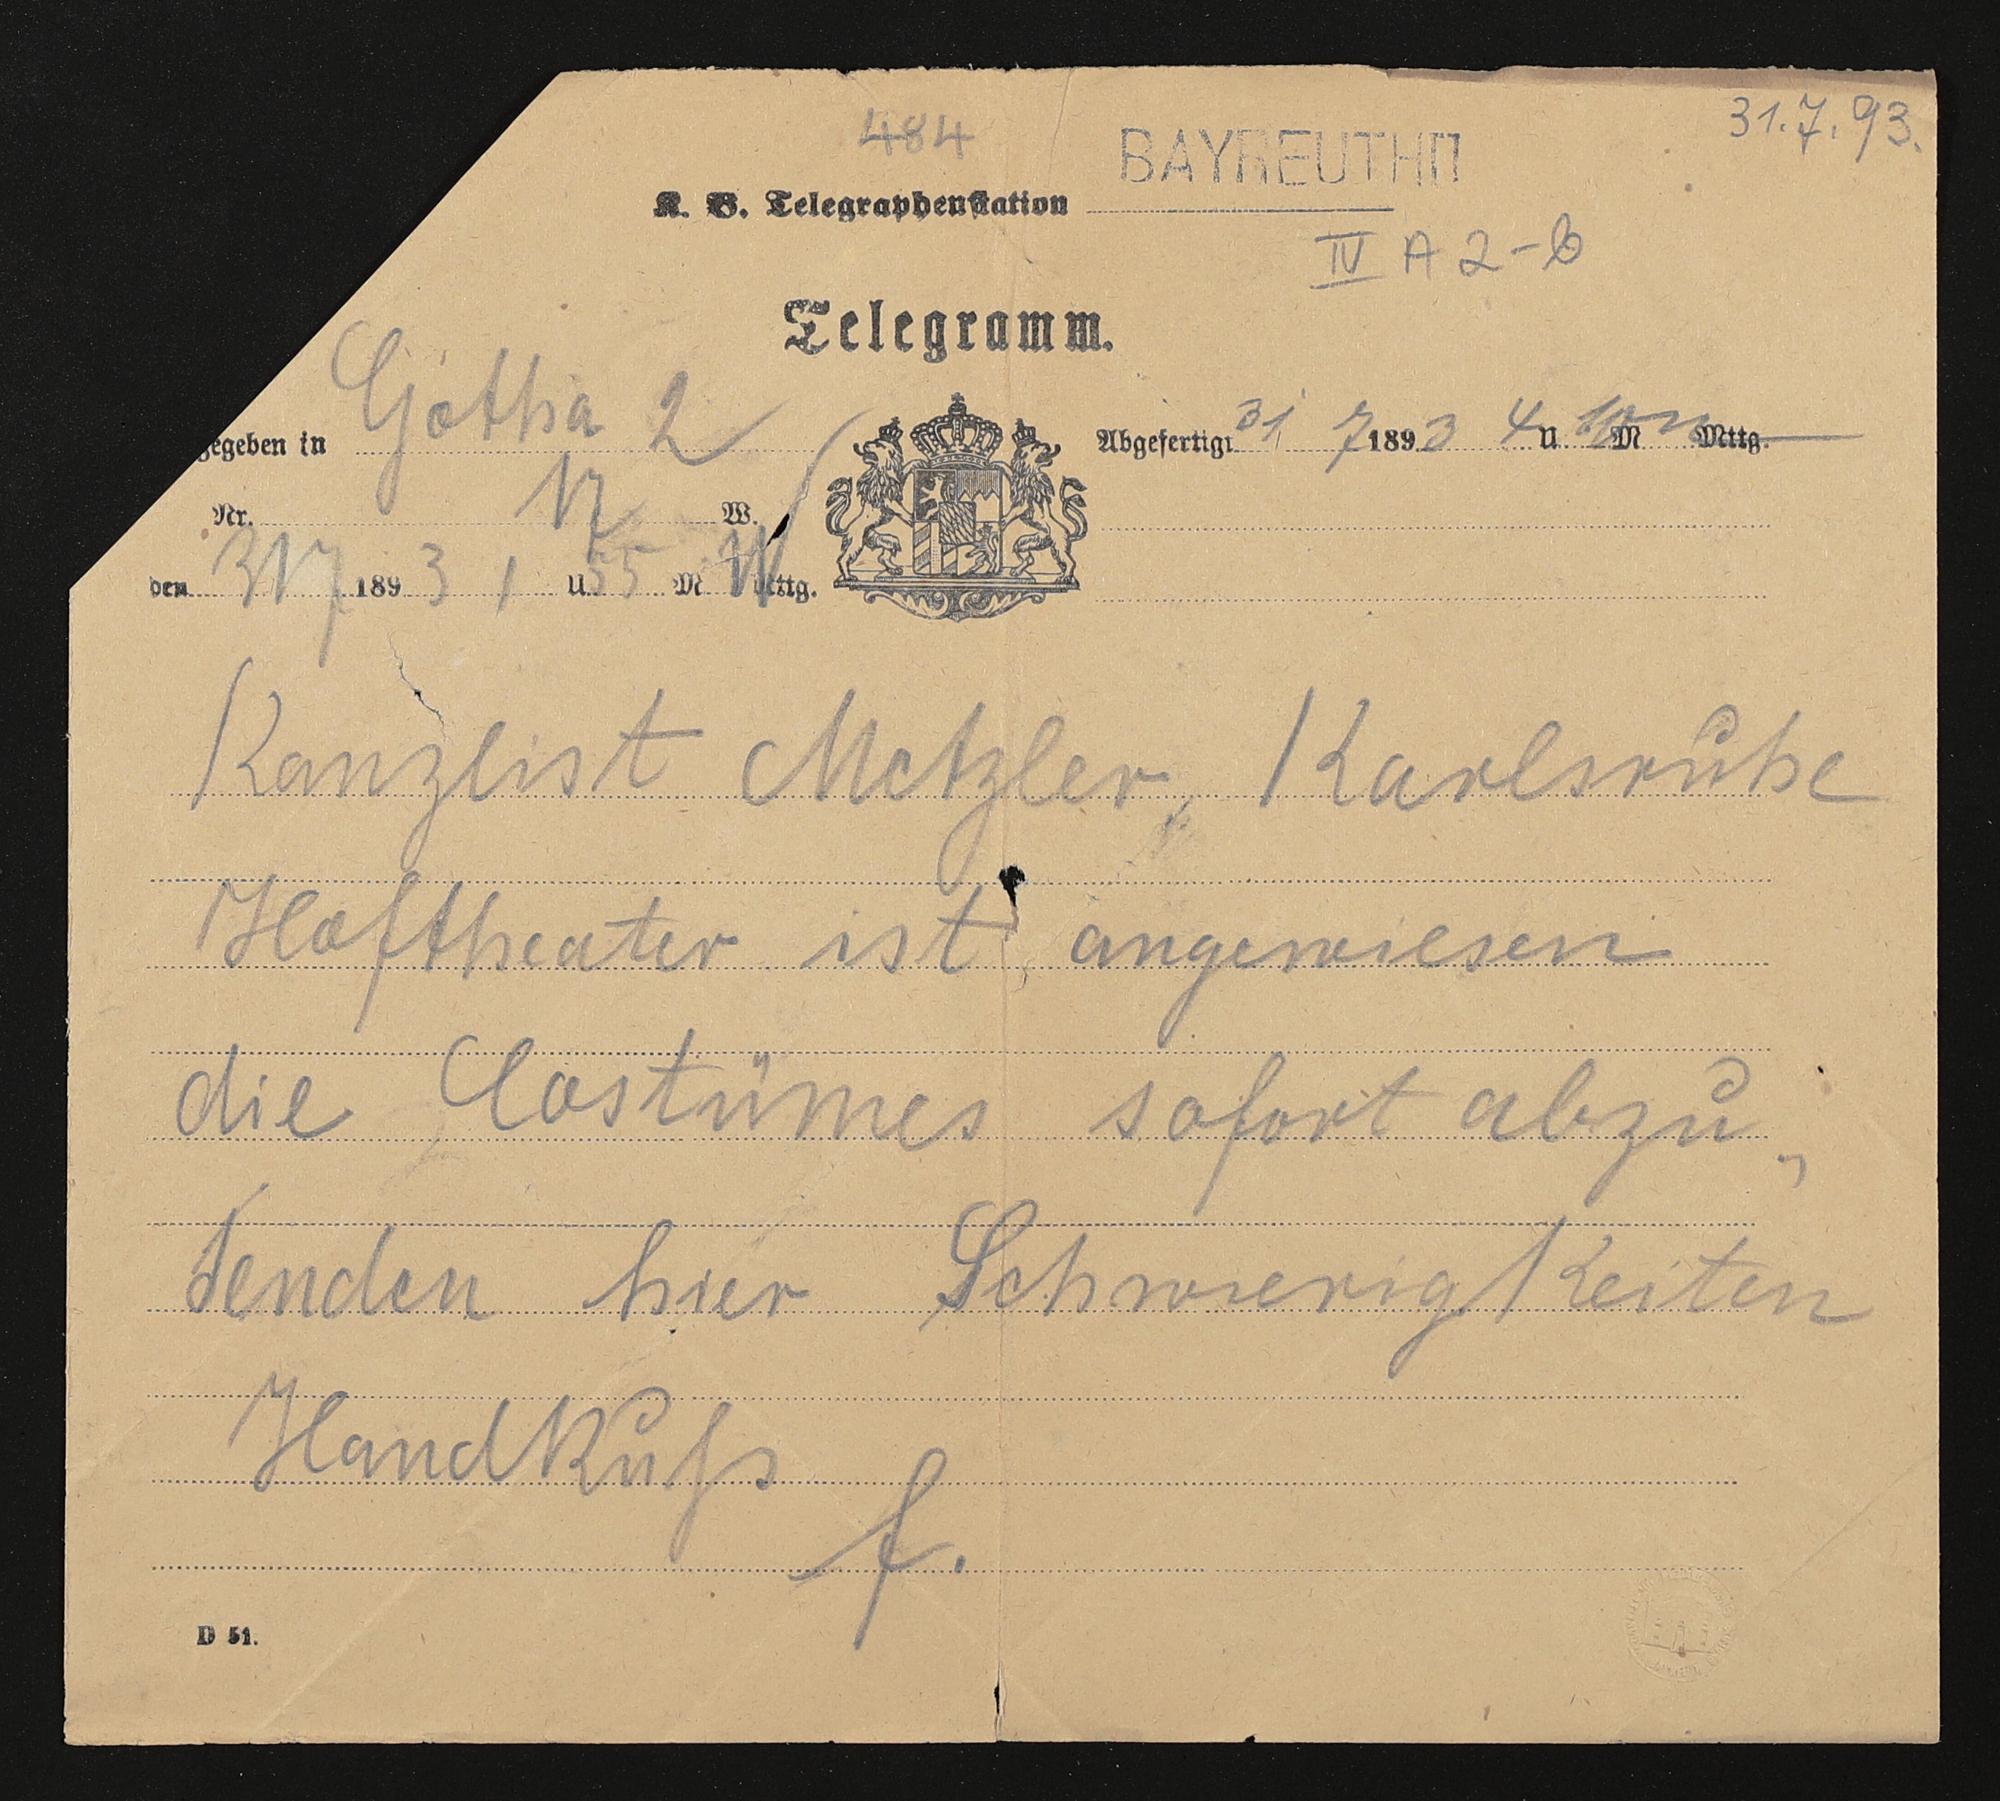 484
BAYREUTH II
31.7.93.
K. B. Telegraphenstation
IV A 2-6
Telegramm.
gegeben in Gotha 2
Abgefertigt 31 7 1893 4 U M Mttg.
Nr. 17 W.
den 31 7 1893 1 U 55 M Mttg.
Kanzlist Metzler, Karlsruhe
Hoftheater ist angewiesen
die Costümes sofort abzu„
senden hier Schwierigkeiten
Handkuß
f.
D 51.